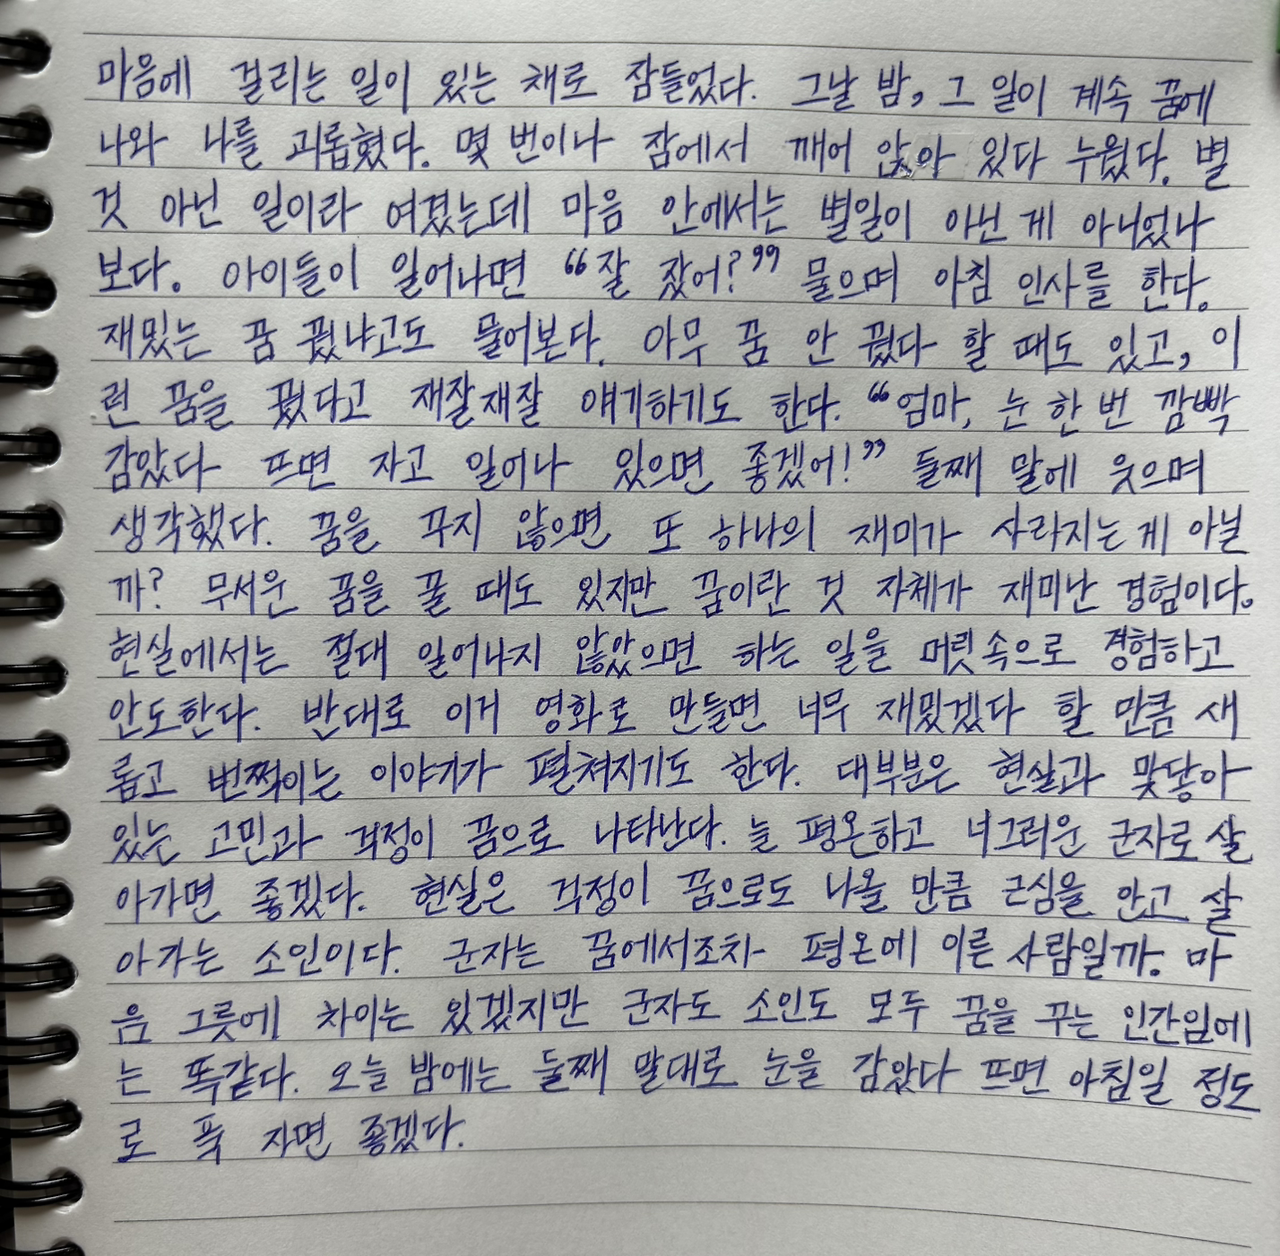 마음에 걸리는 일이 있는 채로 잠들었다. 그날 밤, 그 일이 계속 꿈에
나와 나를 괴롭혔다. 몇 번이나 잠에서 깨어 앉아 있다 누웠다. 별
것 아닌 일이라 여겼는데 마음 안에서는 별일이 아닌 게 아니었나
보다. 아이들이 일어나면 “잘 잤어?” 물으며 아침 인사를 한다.
재밌는 꿈 꿨냐고도 물어본다. 아무 꿈 안 꿨다 할 때도 있고, 이
런 꿈을 꿨다고 재잘재잘 얘기하기도 한다. “엄마, 눈 한 번 깜빡
감았다 뜨면 자고 일어나 있으면 좋겠어!” 둘째 말에 웃으며
생각했다. 꿈을 꾸지 않으면 또 하나의 재미가 사라지는 게 아닐
까? 무서운 꿈을 꿀 때도 있지만 꿈이란 것 자체가 재미난 경험이다.
현실에서는 절대 일어나지 않았으면 하는 일을 머릿속으로 경험하고
안도한다. 반대로 이거 영화로 만들면 너무 재밌겠다 할 만큼 새
롭고 번쩍이는 이야기가 펼쳐지기도 한다. 대부분은 현실과 맞닿아
있는 고민과 걱정이 꿈으로 나타난다. 늘 평온하고 너그러운 군자로 살
아가면 좋겠다. 현실은 걱정이 꿈으로도 나올 만큼 근심을 안고 살
아가는 소인이다. 군자는 꿈에서조차 평온에 이른 사람일까. 마
음 그릇에 차이는 있겠지만 군자도 소인도 모두 꿈을 꾸는 인간임에
는 똑같다. 오늘 밤에는 둘째 말대로 눈을 감았다 뜨면 아침일 정도
로 푹 자면 좋겠다.